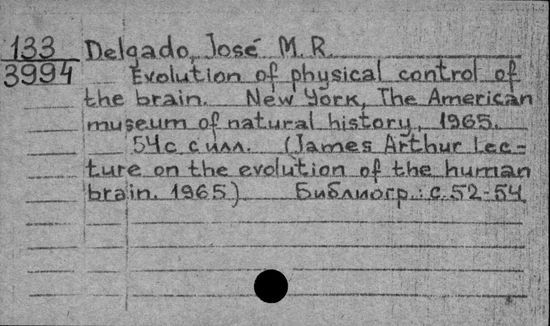 133 Delgado, José M. R.
3994 Evolution of physical control of
the brain. New York, The American
museum of natural history, 1965.
54с с илл. (James Arthur Lec-
ture on the evolution of the human
brain. 1965) Библиогр.: с. 52-54